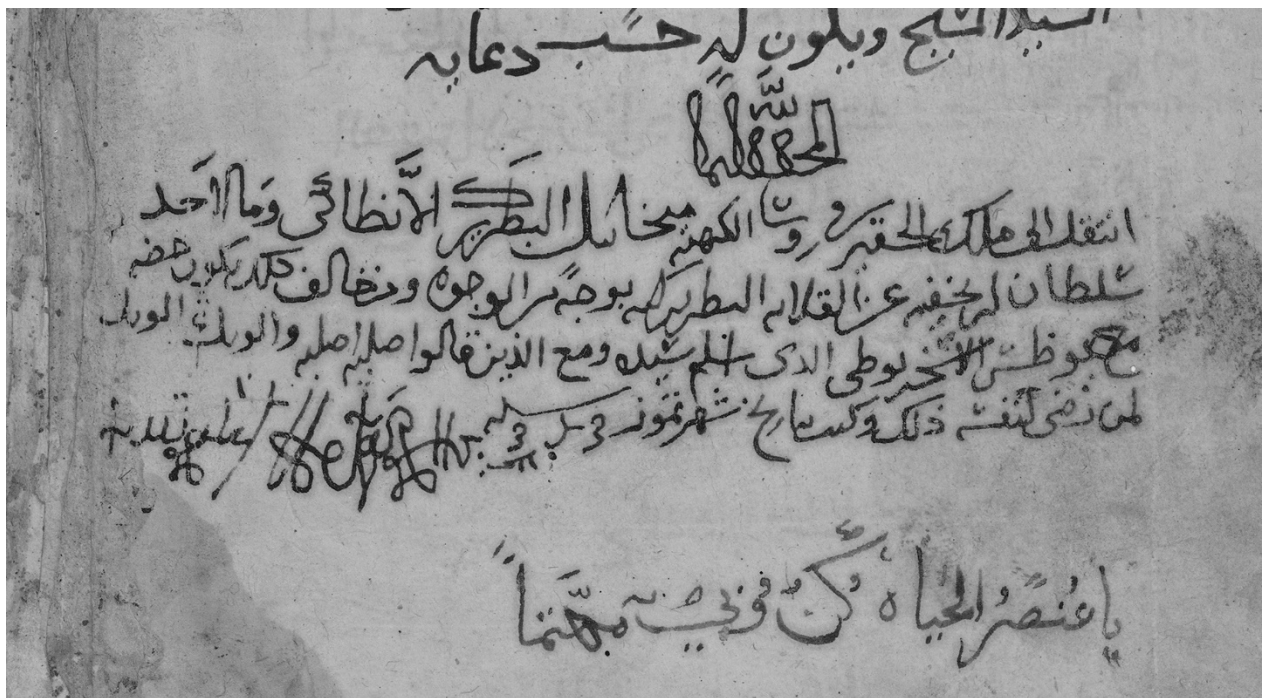 السيد المسيح ويكون له حسب دعايه
المجد لله دايما
انتقل الى ملك الحقير في روسا الكهنه ميخاييل البطريرك الانطاكي وما لاحد
سلطان ان يخفيه عن القلايه البطريركيه بوجه من الوجوه ومن خالف ذلك يكون حضه
مع يوظس الاسخريوطي الذي اسلم سيده ومع الذين قالوا اصلبه اصلبه والويل ثم الويل
لمن رضى لنفسه ذلك وكتب بتاريخ شهر تموز
يا عنصر الحياه كن مهتما